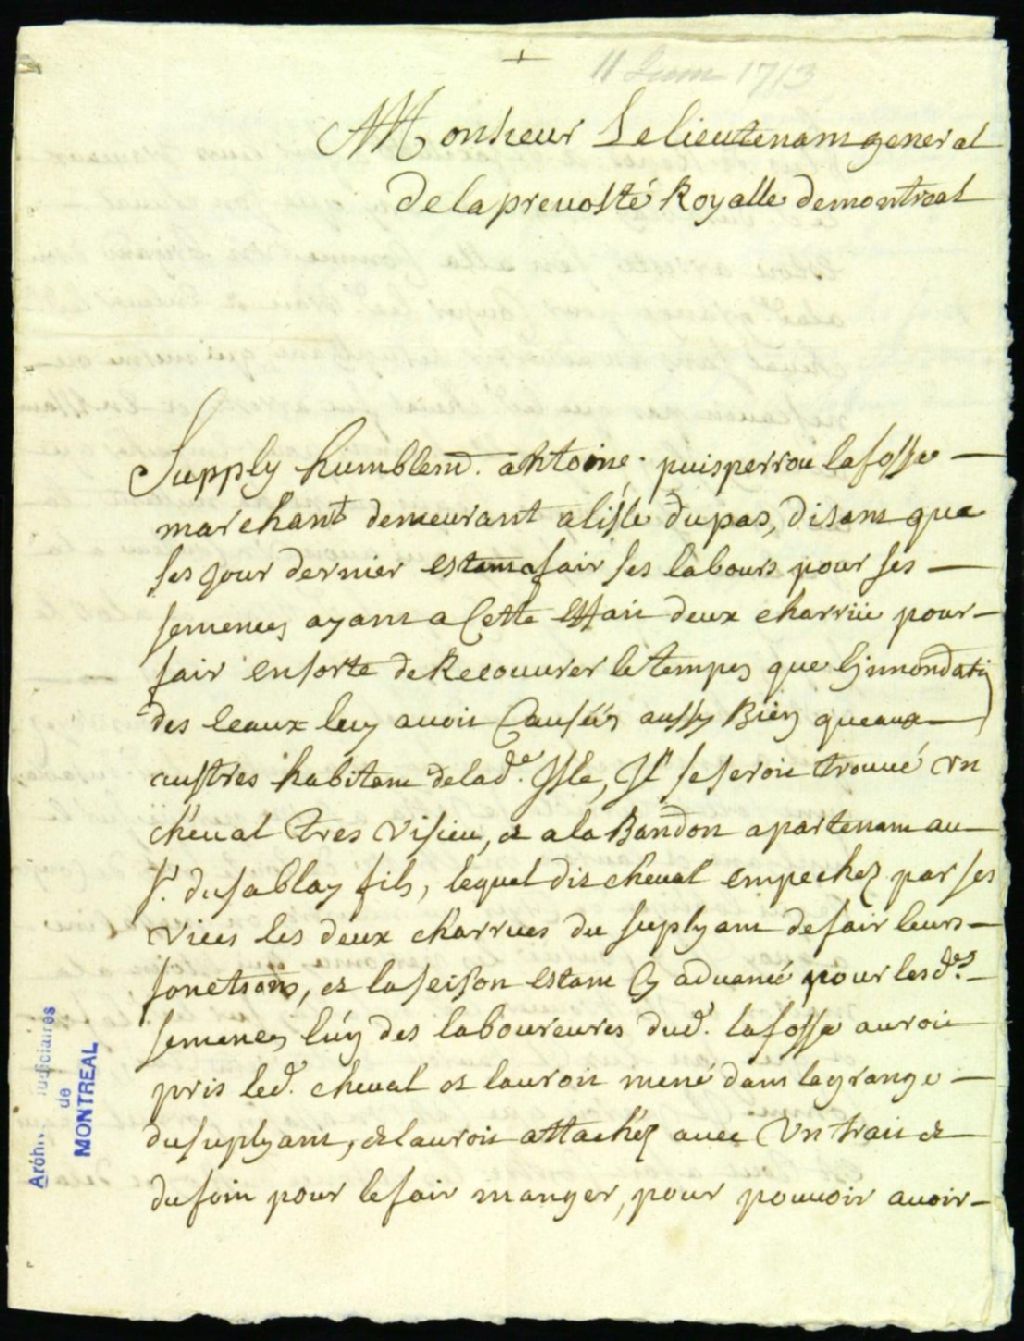 11 Juin 1713
Monsieur Le lieutenant general
de la prevosté Royalle de montreal
Supply humblemt. antoine puisperrou lafosse
marchant demeurant a lisle dupas, disant que
ses jour dernier estant a fair ses labours pour ses
semences ayant a Cette effait deux charrüe pour
fair ensorte de Recouvrer le temps que Linnondation
des leaux luy avoit Causéz aussy Bien que aux
austres habitant de lade. Isle, Il se seroit trouvé un
cheval tres visieu, et a la Bandon apartenant au
Sr. dusablay fils, lequel dit cheval empechez par ses
vices les deux charrues du suplyant de fair leurs
fonctions, et la seison estant Cy advancé pour lesdes.
semences luy des laboureures dud. lafosse auroit
pris led. cheval et lauroit mené dans la grange
du suplyant, et lauroit attachez avec un trait et
du foin pour le fair manger, pour pouvoir avoir
Archives Judiciaires
de
MONTREAL